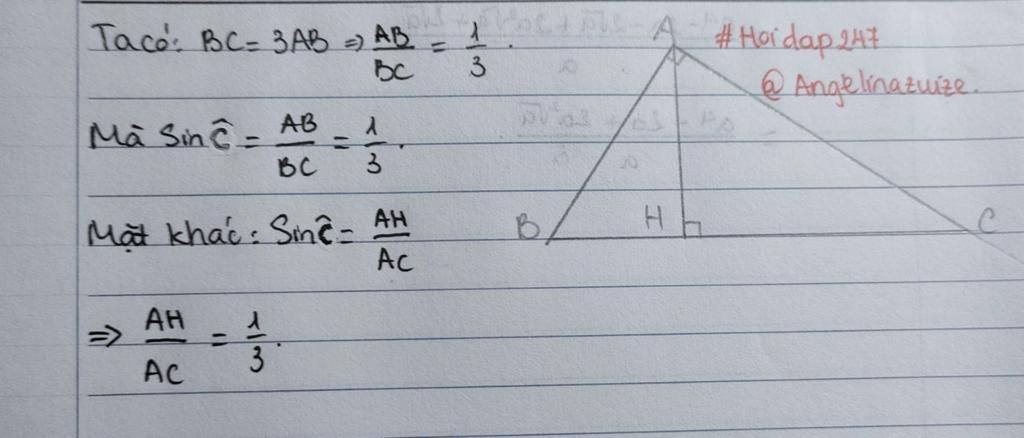 Ta có: BC = 3AB => AB/BC = 1/3.
Mà Sin Ĉ = AB/BC = 1/3.
Mặt khác: Sin Ĉ = AH/AC
=> AH/AC = 1/3.
A
#Hoidap247
@Angelinazuize.
B H C